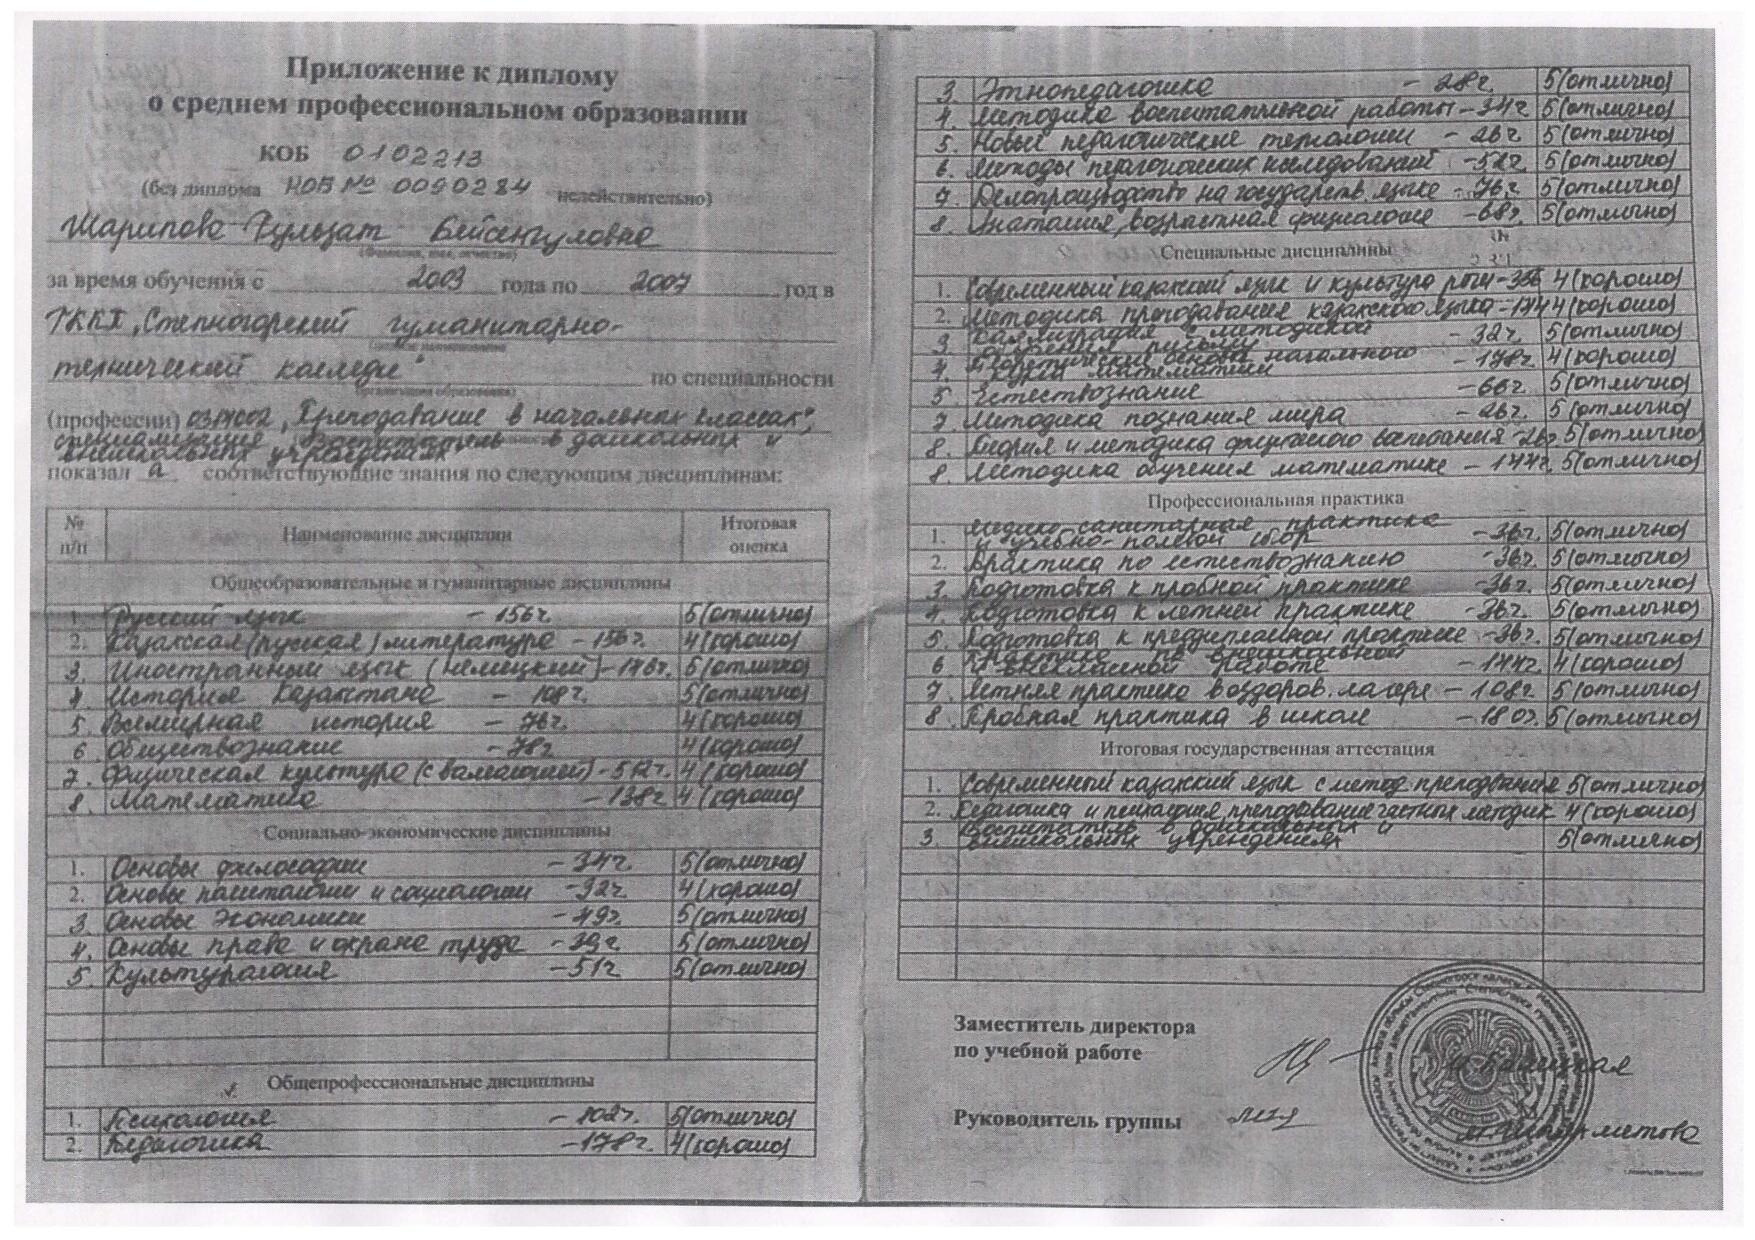 Приложение к диплому
о среднем профессиональном образовании
КОБ 0102213
(без диплома КОБ № 0090284 недействительно)
Шарипова Гульзат Бейсенгуловна
(Фамилия, имя, отчество)
за время обучения с 2003 года по 2007 год в
ГККП „Степногорский гуманитарно-
технический колледж"
по специальности
(профессии) „Преподавание в начальных классах",
специализация „Воспитатель в дошкольных и
внешкольных учреждениях"
показал а соответствующие знания по следующим дисциплинам:
№ п/п Наименование дисциплин Итоговая оценка
Общеобразовательные и гуманитарные дисциплины
1. Русский язык - 156ч. 5(отлично)
2. Казахская (русская) литература - 156ч. 4(хорошо)
3. Иностранный язык (немецкий) - 5(отлично)
4 История Казахстана - 108ч. 5(отлично)
5. Всемирная история - 76ч. 4(хорошо)
6 Обществознание - 78ч 4(хорошо)
7. Физическая культура (с валеологией) - 4(хорошо)
8. Математика - 138ч 4(хорошо)
Социально-экономические дисциплины
1. Основы философии - 34ч. 5(отлично)
2. Основы политологии и социологии - 32ч 4(хорошо)
3 Основы экономики - 49ч. 5(отлично)
4. Основы права и охрана труда - 39ч. 5(отлично)
5 Культурология - 51ч 5(отлично)
Общепрофессиональные дисциплины
1. Психология - 102ч. 5(отлично)
2. Педагогика - 178ч. 4(хорошо)
3. Этнопедагогика - 28ч. 5(отлично)
4. Методика воспитательной работы - 34ч 5(отлично)
5. Новые педагогические технологии - 26ч 5(отлично)
6. Методы педагогических исследований - 52ч. 5(отлично)
7. Делопроизводство на государств. языке - 76ч 5(отлично)
8. Анатомия, возрастная физиология - 68ч. 5(отлично)
Специальные дисциплины
1. Современный казахский язык и культура речи - 336 4(хорошо)
2. Методика преподавания казахского языка - 144 4(хорошо)
3 Каллиграфия с методикой обучения письму - 32ч. 5(отлично)
4. Теоретические основы начального курса математики - 178ч 4(хорошо)
5 Естествознание - 66ч. 5(отлично)
7 Методика познания мира - 26ч. 5(отлично)
8 Теория и методика физического воспитания - 26ч 5(отлично)
8. Методика обучения математике - 144ч. 5(отлично)
Профессиональная практика
1. Медико-санитарная практика и учебно-полевой сбор - 36ч. 5(отлично)
2. Практика по естествознанию - 36ч. 5(отлично)
3. Подготовка к пробной практике - 36ч. 5(отлично)
4. Подготовка к летней практике - 36ч. 5(отлично)
5. Подготовка к преддипломной практике - 36ч. 5(отлично)
6 Практика по внешкольной и внеклассной работе - 144ч. 4(хорошо)
7 Летняя практика в оздоров. лагере - 108ч. 5(отлично)
8 Пробная практика в школе - 180ч. 5(отлично)
Итоговая государственная аттестация
1. Современный казахский язык с метод. преподавания 5(отлично)
2. Педагогика и психология, преподавание частных методик 4(хорошо)
3. Воспитатель в дошкольных и внешкольных учреждениях 5(отлично)
Заместитель директора
по учебной работе
Руководитель группы